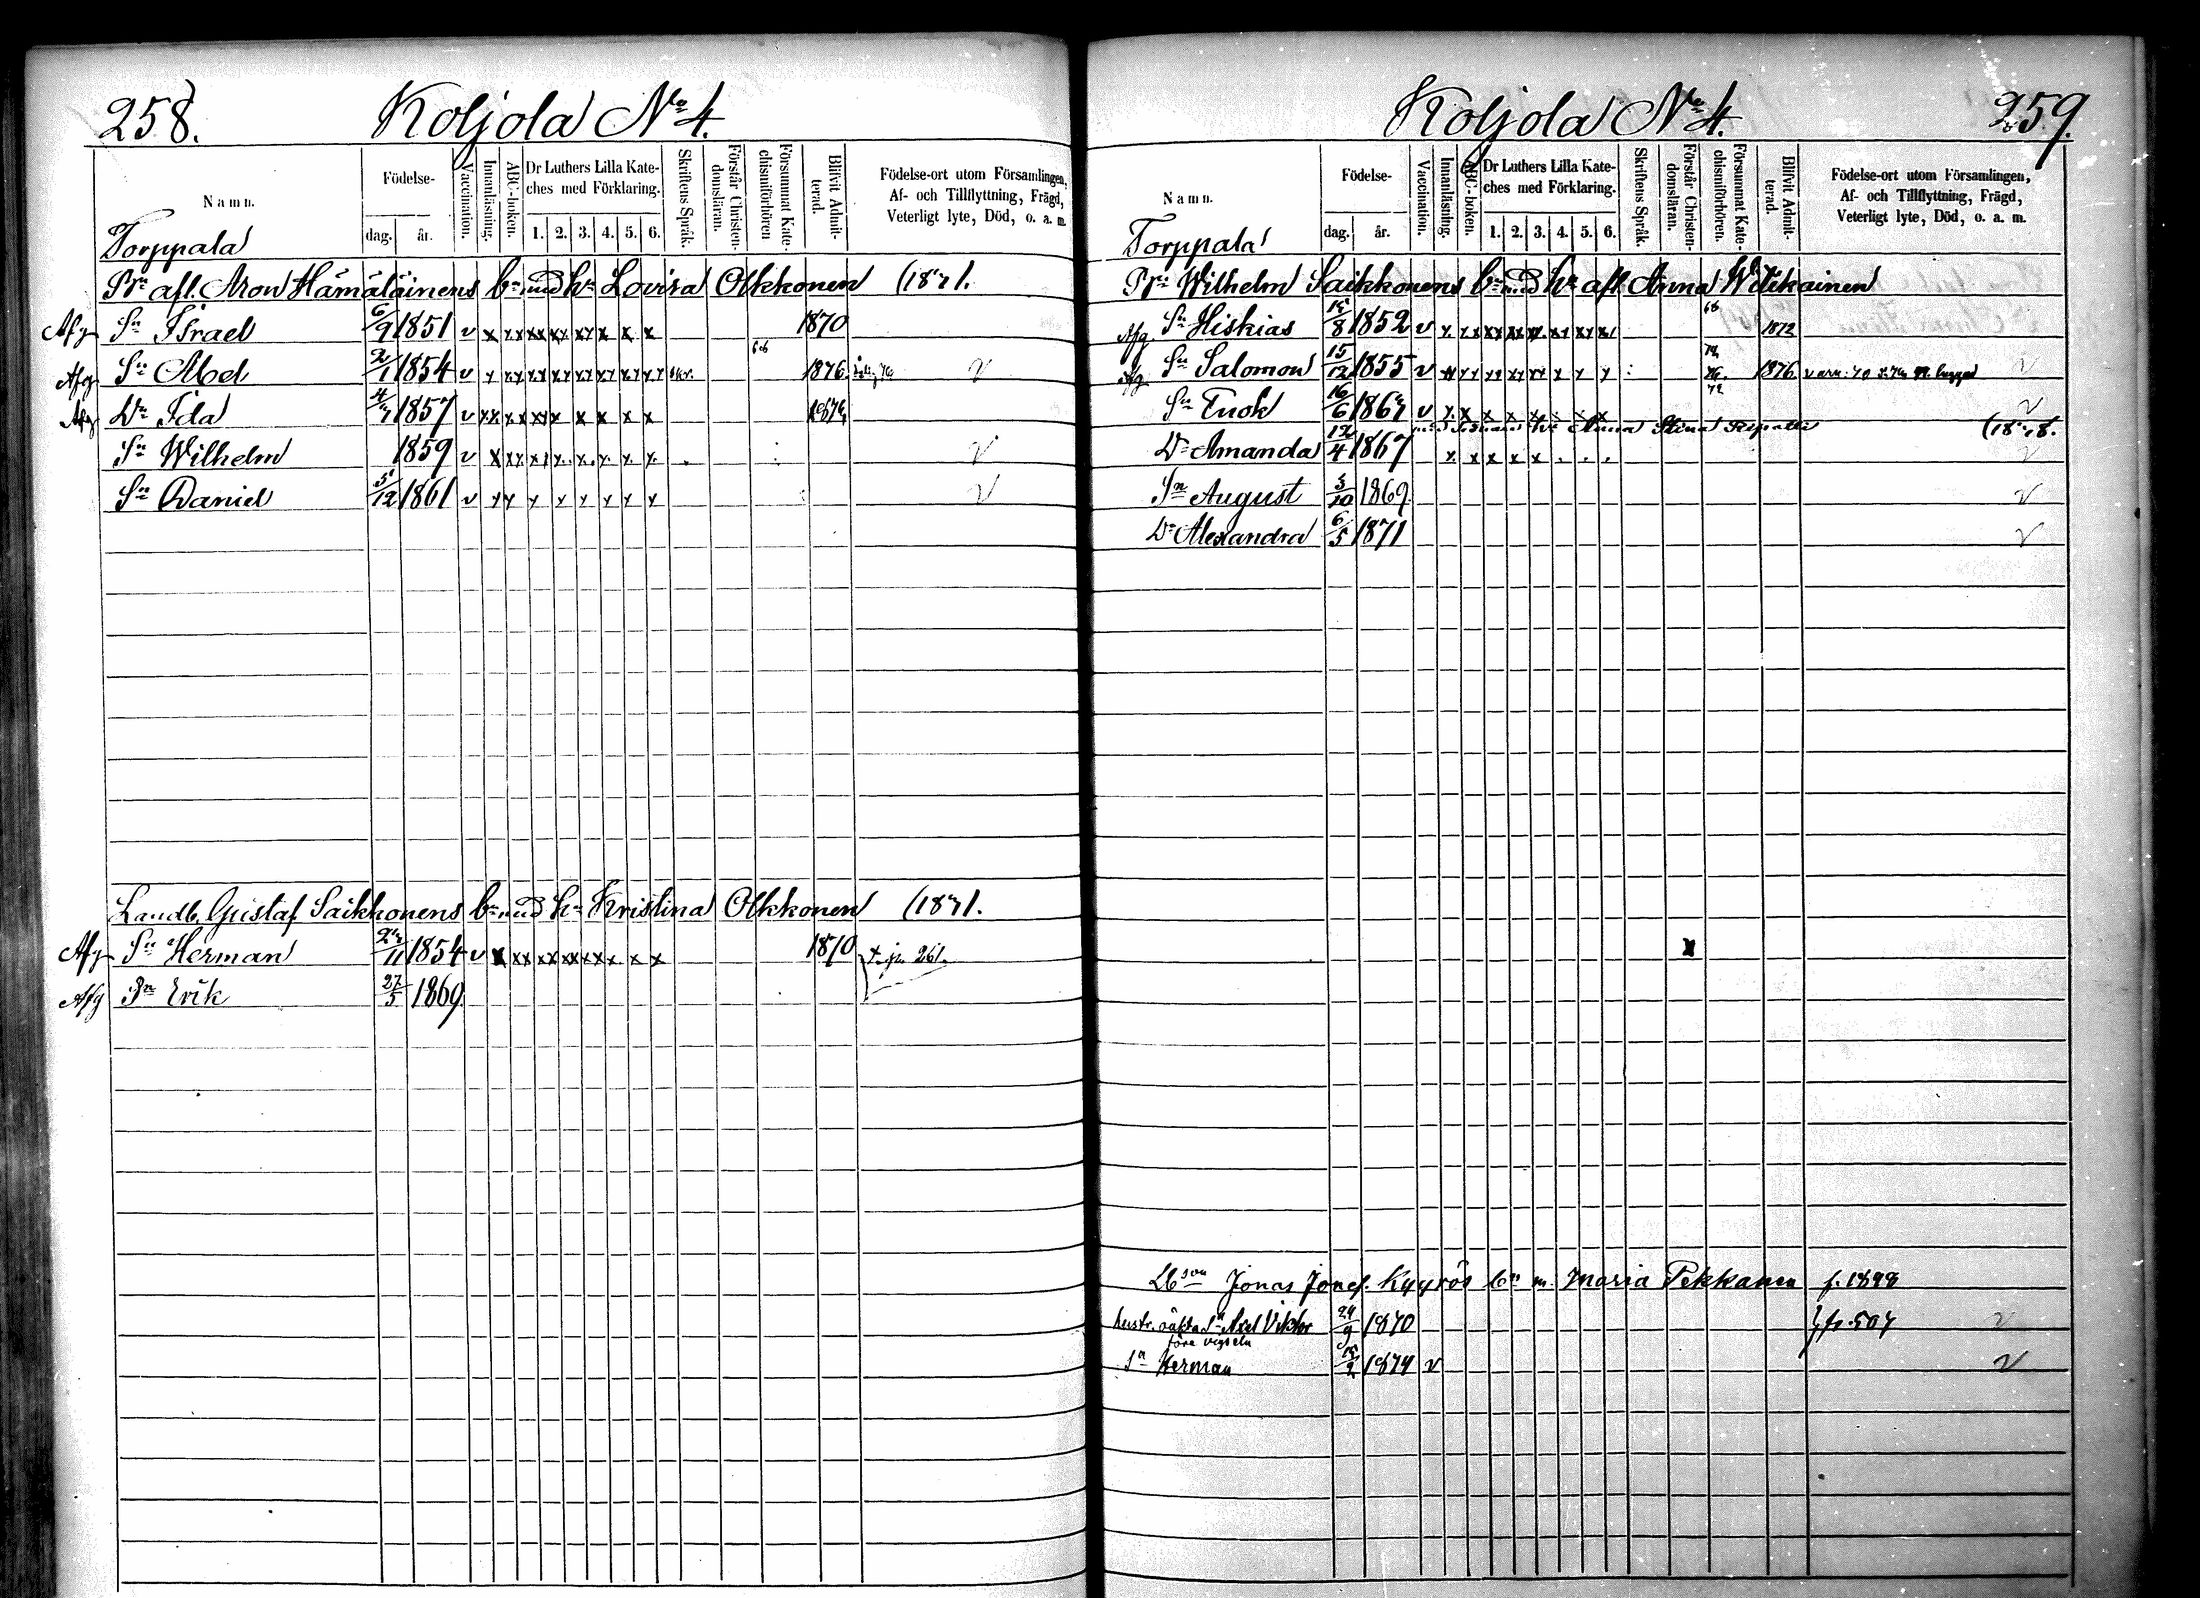 258.
Koljola No 4.
Namn.
Födelse-
dag.
år.
Vaccination.
Innanläsning.
ABC-boken.
Dr Luthers Lilla Kate-
ches med Förklaring.
1. 2. 3. 4. 5. 6.
Skriftens Språk.
Förstår Christen-
domsläran.
Försummat Kate-
chismiförhören
Blifvit Admit-
terad.
Födelse-ort utom Församlingen,
Af- och Tillflyttning, Frägd,
Veterligt lyte, Död, o. a. m.
Torppala
Afl. Aron Hämäläinens bn med hu Lovisa Olkkonen (1871.
Afg Sn Israel 6/9 1851 v x xx xx xx xx x x x 1870
Afg Sn Abel 2/1 1854 v x xx xx xx xx xx xx xx skr. 1876. v
Afg Dr Ida 4/7 1857 v xx xx xx x x x x x 1874
Sn Wilhelm 1859 v x xx xx x x x x x v
Sn Daniel 5/12 1861 v x x x x x x x x v
Landb. Gustaf Saikkonens bn med hu Kristina Olkkonen (1871.
Afg Sn Herman 27/11 1854 v x xx xx xx xx x x x 1870 261.
Afg Sn Erik 27/5 1869
Koljola No 4.
259.
Namn.
Födelse-
dag.
år.
Vaccination.
Innanläsning.
ABC-boken.
Dr Luthers Lilla Kate-
ches med Förklaring.
1. 2. 3. 4. 5. 6.
Skriftens Språk.
Förstår Christen-
domsläran.
Försummat Kate-
chismiförhören.
Blifvit Admit-
terad.
Födelse-ort utom Församlingen,
Af- och Tillflyttning, Frägd,
Veterligt lyte, Död, o. a. m.
Torppala
Wilhelm Saikkonens bn med hu afl Anna
Afg. Sn Hiskias 1852 v x xx xx xx xx xx xx xx 68 1872
Afg Sn Salomon 15/12 1855 v xx xx xx xx xx x x x 1876. v
Sn Enok 16/6 1867 v x x x x x x x x v
hu Anna Stina (1878.
Dr Amanda 12/4 1867 x x x x x v
Sn August 3/10 1869 v
Dr Alexandra 6/5 1871 v
Lbson Jonas Jonef. Kyyrös bn m. Maria Pekkanen f. 1848
Axel Viktor 24/9 1870 fr. 507 v
före vigseln
Sn Herman 15/2 1874 v v